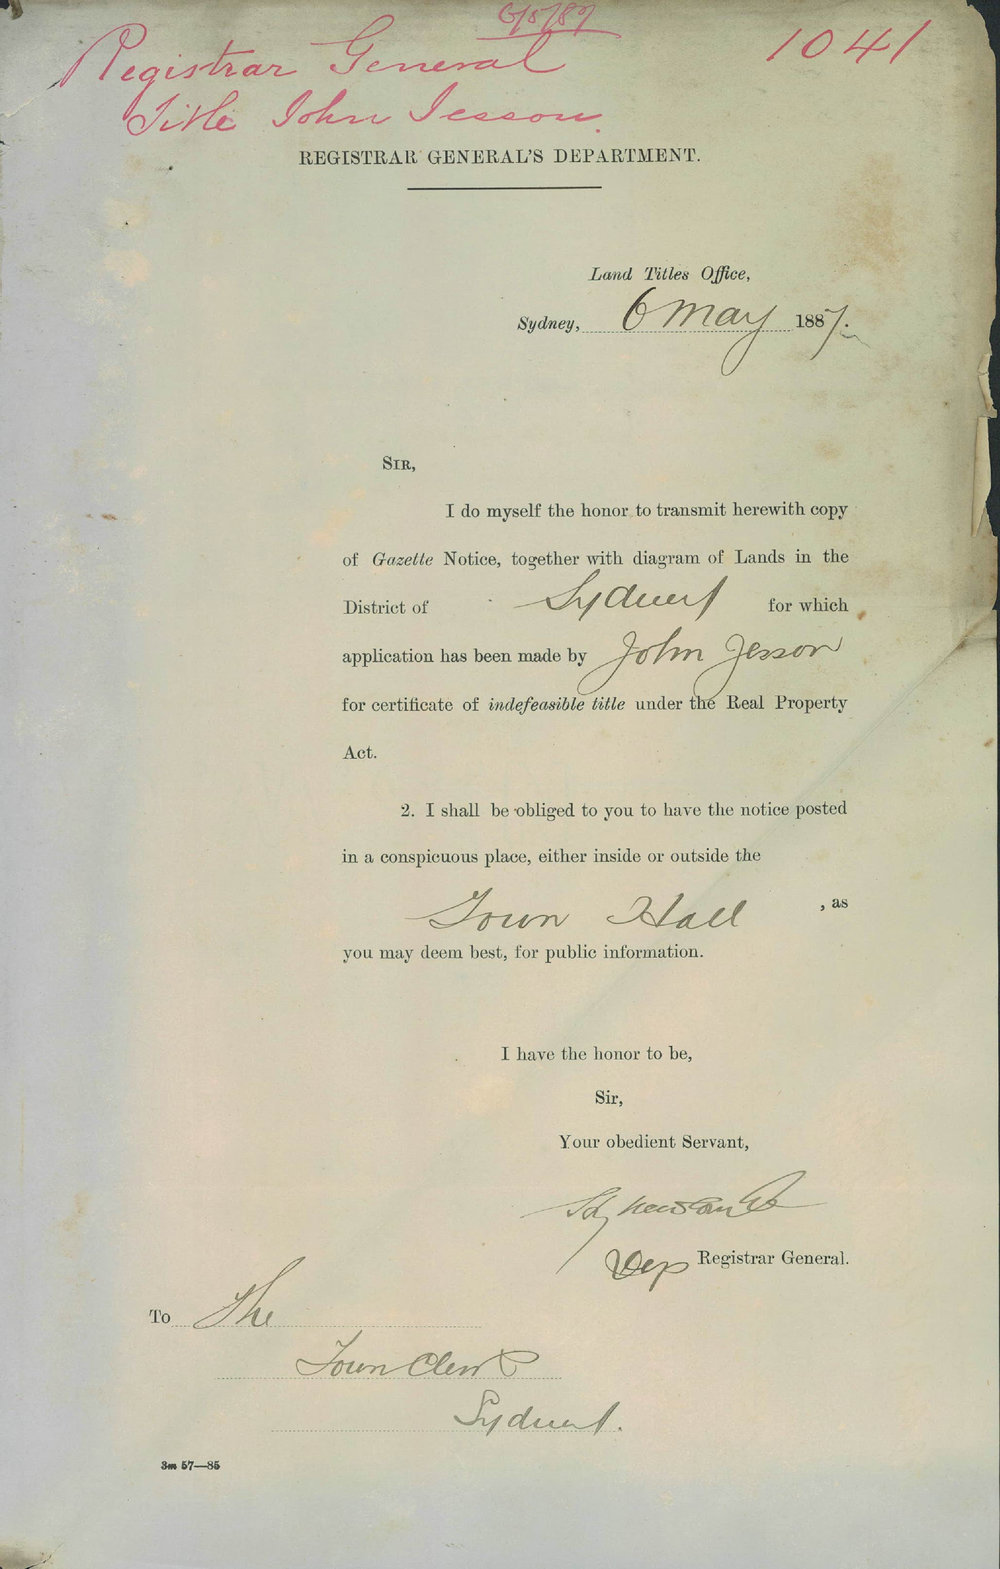 6/5/87
Registrar General 1041
Title John Jesson.
REGISTRAR GENERAL'S DEPARTMENT.
Land Titles Office,
Sydney, 6 May 1887.
SIR,
I do myself the honor to transmit herewith copy
of Gazette Notice, together with diagram of Lands in the
District of Sydney for which
application has been made by John Jesson
for certificate of indefeasible title under the Real Property
Act.
2. I shall be obliged to you to have the notice posted
in a conspicuous place, either inside or outside the
Town Hall , as
you may deem best, for public information.
I have the honor to be,
Sir,
Your obedient Servant,
Dep Registrar General.
To The
Town Clerk
Sydney.
3m 57—85